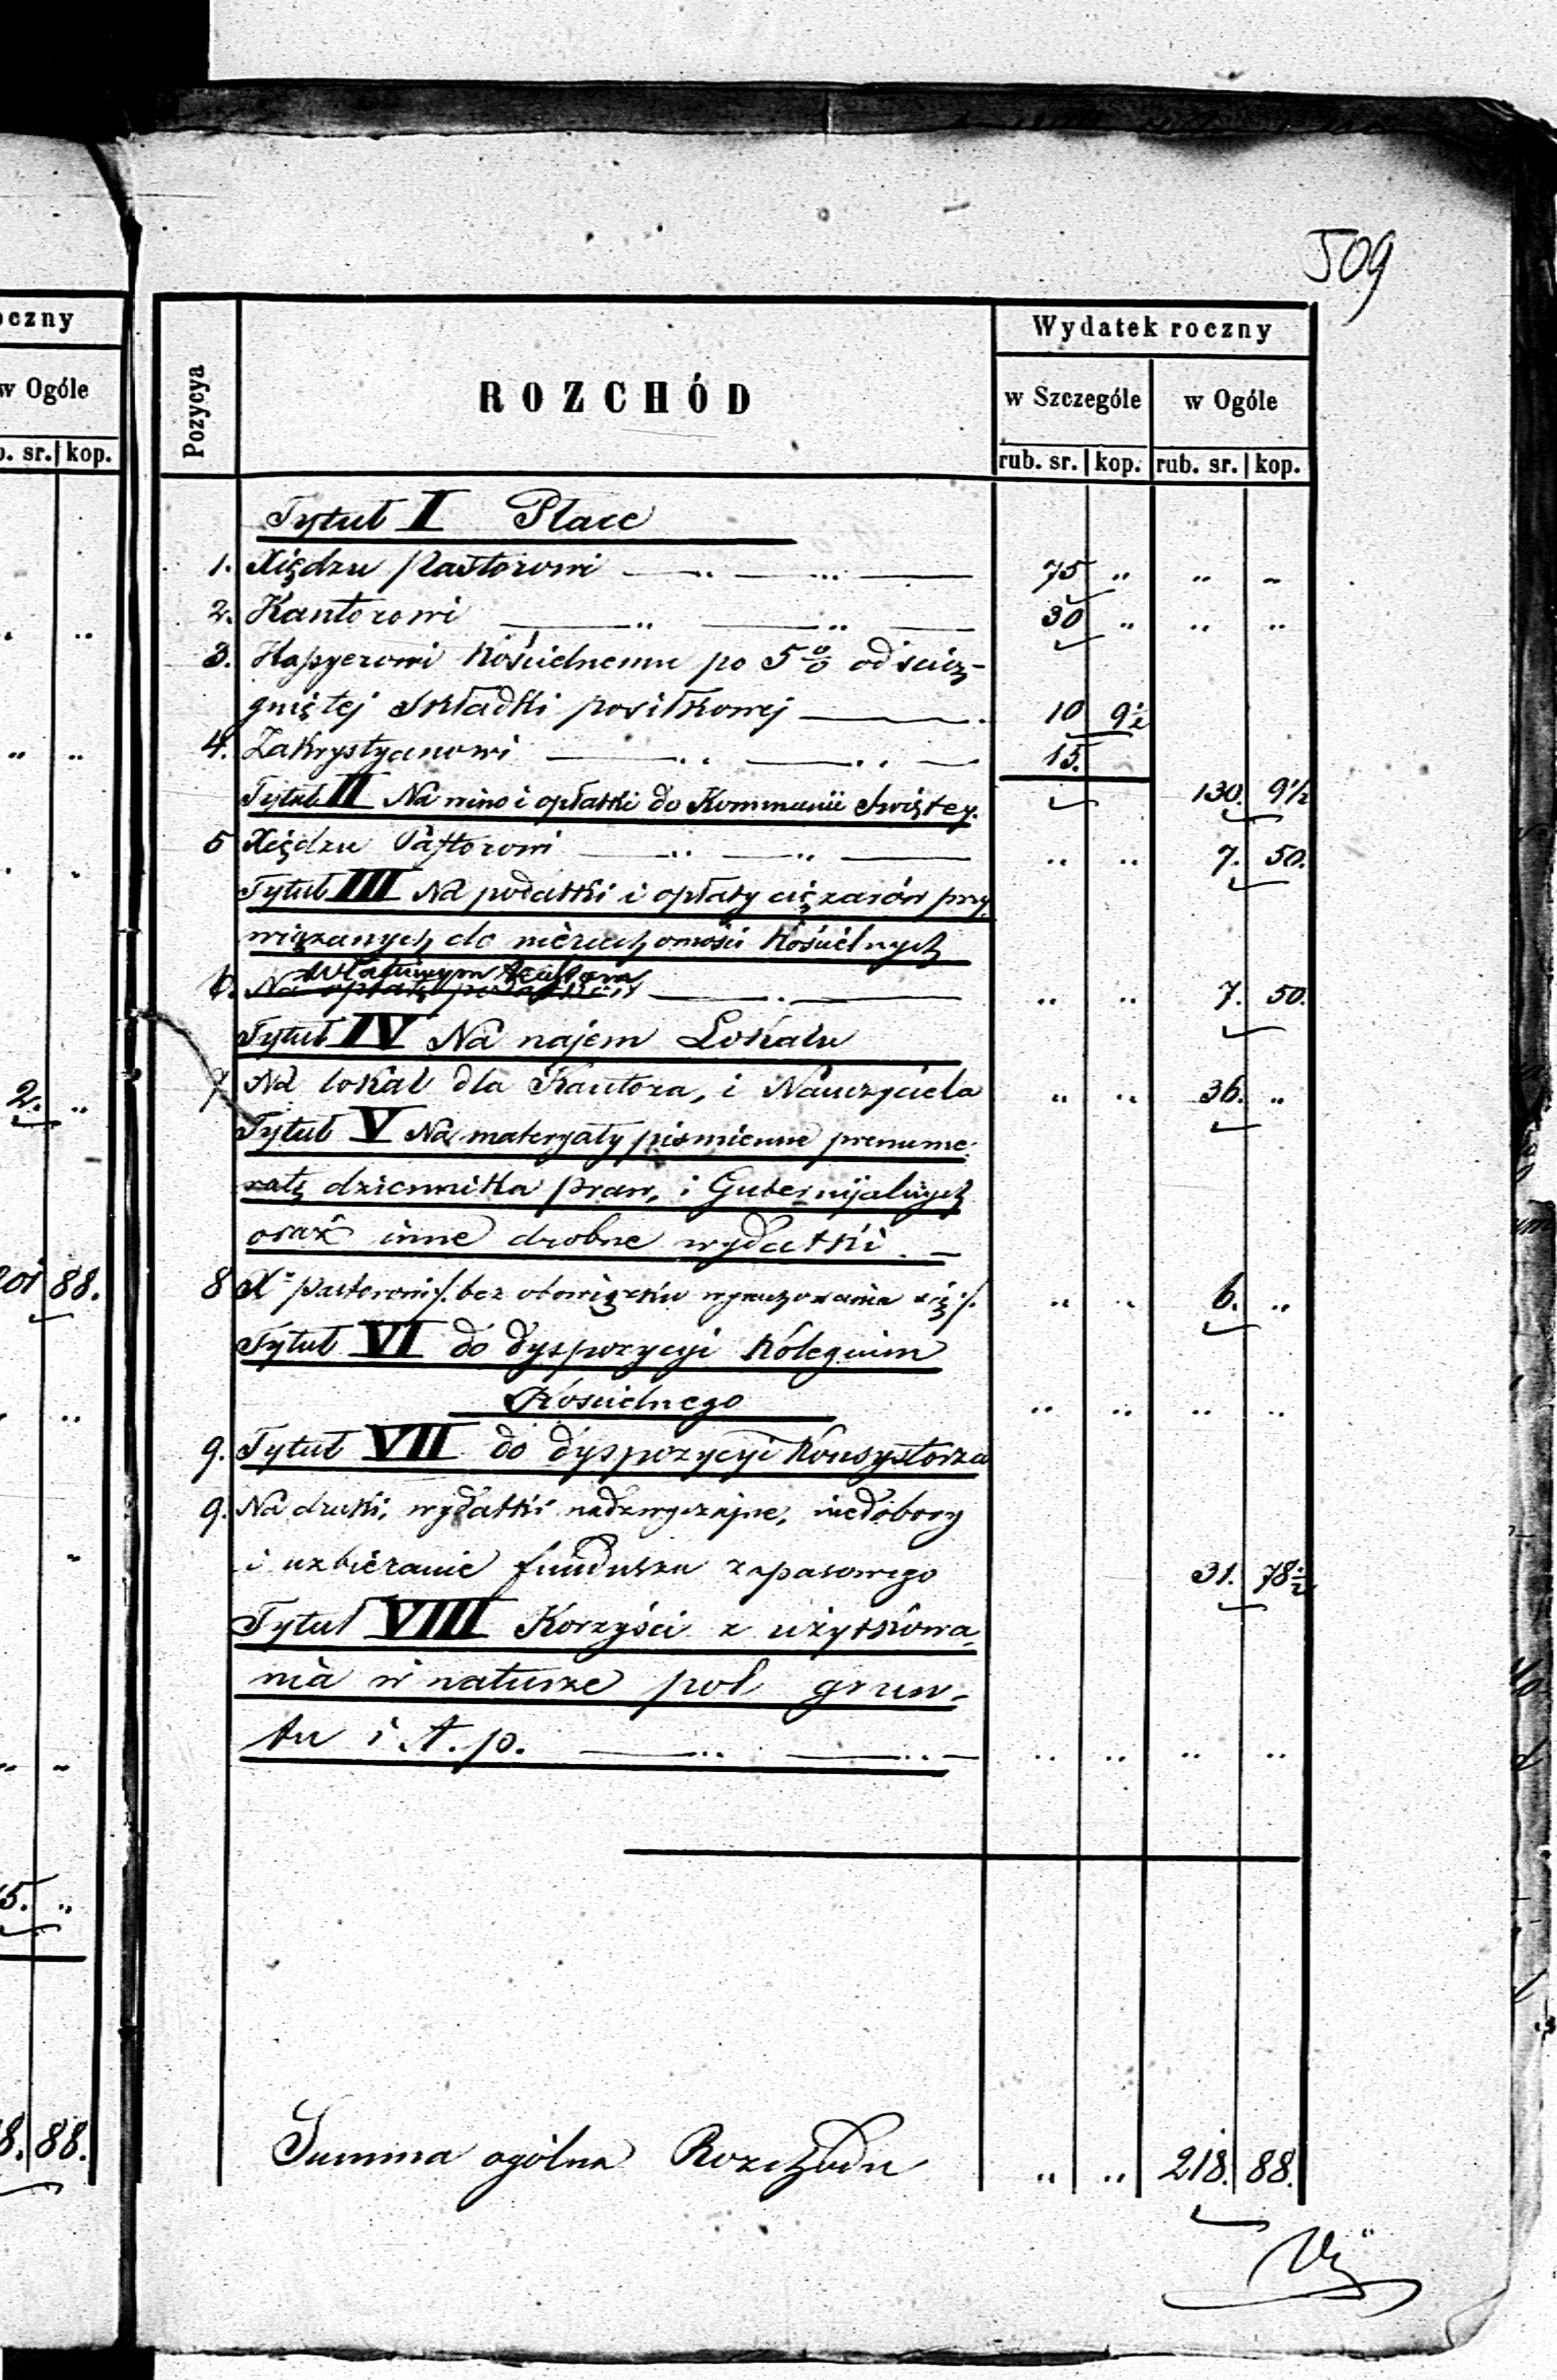 509
oczny
w Ogóle
b. sr. kop.
2. „
201 88.
15. „
8. 88.
Pozycya
ROZCHÓD
Wydatek roczny
w Szczególe w Ogóle
rub. sr. kop. rub. sr. kop.
Tytuł I Płace
1. Xiędzu Pastorowi 75 „ „ „
2. Kantorowi 30 „ „ „
3. Kassyerowi Kościelnemu po 5 % od ścią-
gniętej składki posiłkowej 10 9½
4. Zakrystyanowi 15.
Tytuł II Na wino i opłatki do Kommunii Świętey. 130. 9½
5 Xiędzu Pastorowi „ „ 7. 50.
Tytuł III Na podatki i opłaty ciężarów przy-
wiązanych do nieruchomości Kościelnych
6. Na opłatę „ „ 7. 50.
Tytuł IV Na najem Lokalu
7 Na lokal dla Kantora, i Nauczyciela „ „ 36. „
Tytuł V Na materyały piśmienne prenume-
ratę dziennika praw, i Gubernijalnych
oraz inne drobne wydatki. —
8 Xu Pastorowi /: bez obowiązku wyrachowania się :/. „ „ 6. „
Tytuł VI do dyspozycyi Kolegium
Kościelnego „ „ „ „
9. Tytuł VII do dyspozycyi Konsystorza
9. Na druki, wydatki nadzwyczajne, niedobory
i uzbieranie funduszu zapasowego 31. 78½
Tytuł VIII Korzyści z użytkowa-
nia w naturze pól grun-
tu i. t. p. „ „ „ „
Summa ogólna Rozchodu „ „ 218. 88.